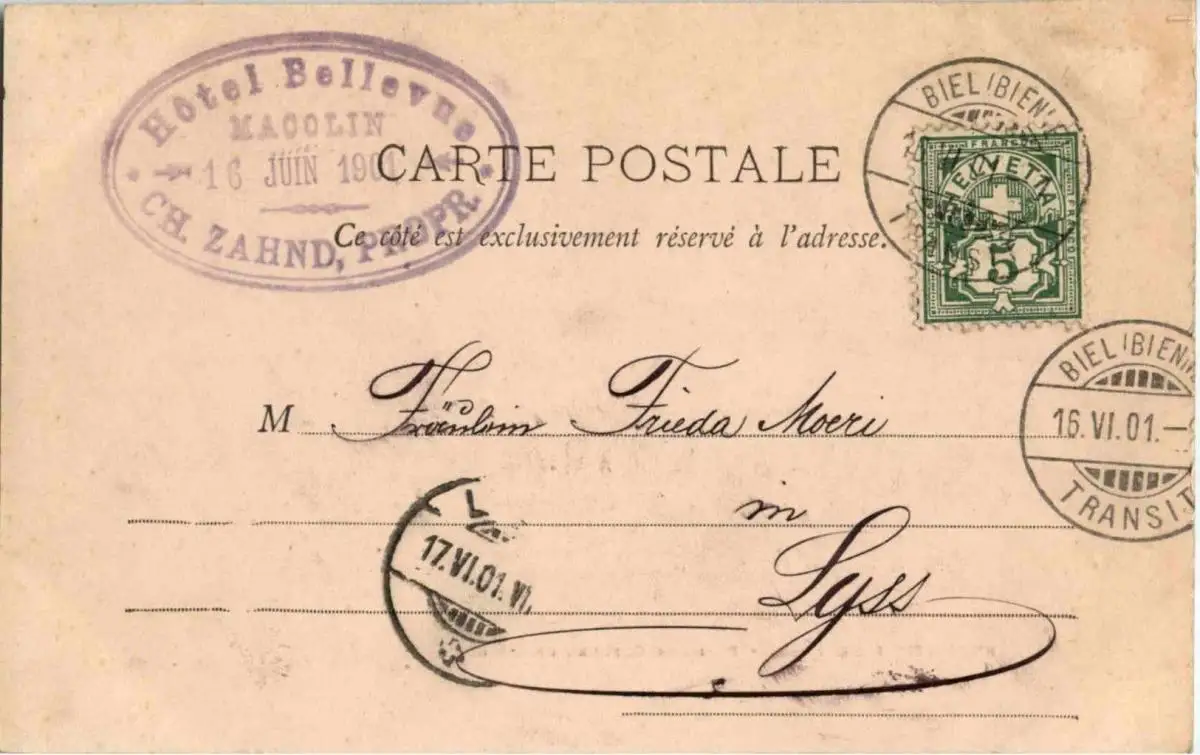 Hôtel Bellevue
MACOLIN
16 JUIN 1901
CH. ZAHND, PROPR.
CARTE POSTALE
Ce côté est exclusivement réservé à l'adresse.
BIEL (BIENNE)
TRANSIT
FRANCO
HELVETIA
FRANCO
5
M Fräulein Frieda Moeri
in
Lyss
BIEL (BIENN
16.VI.01.—
TRANSIT
17.VI.01.VI